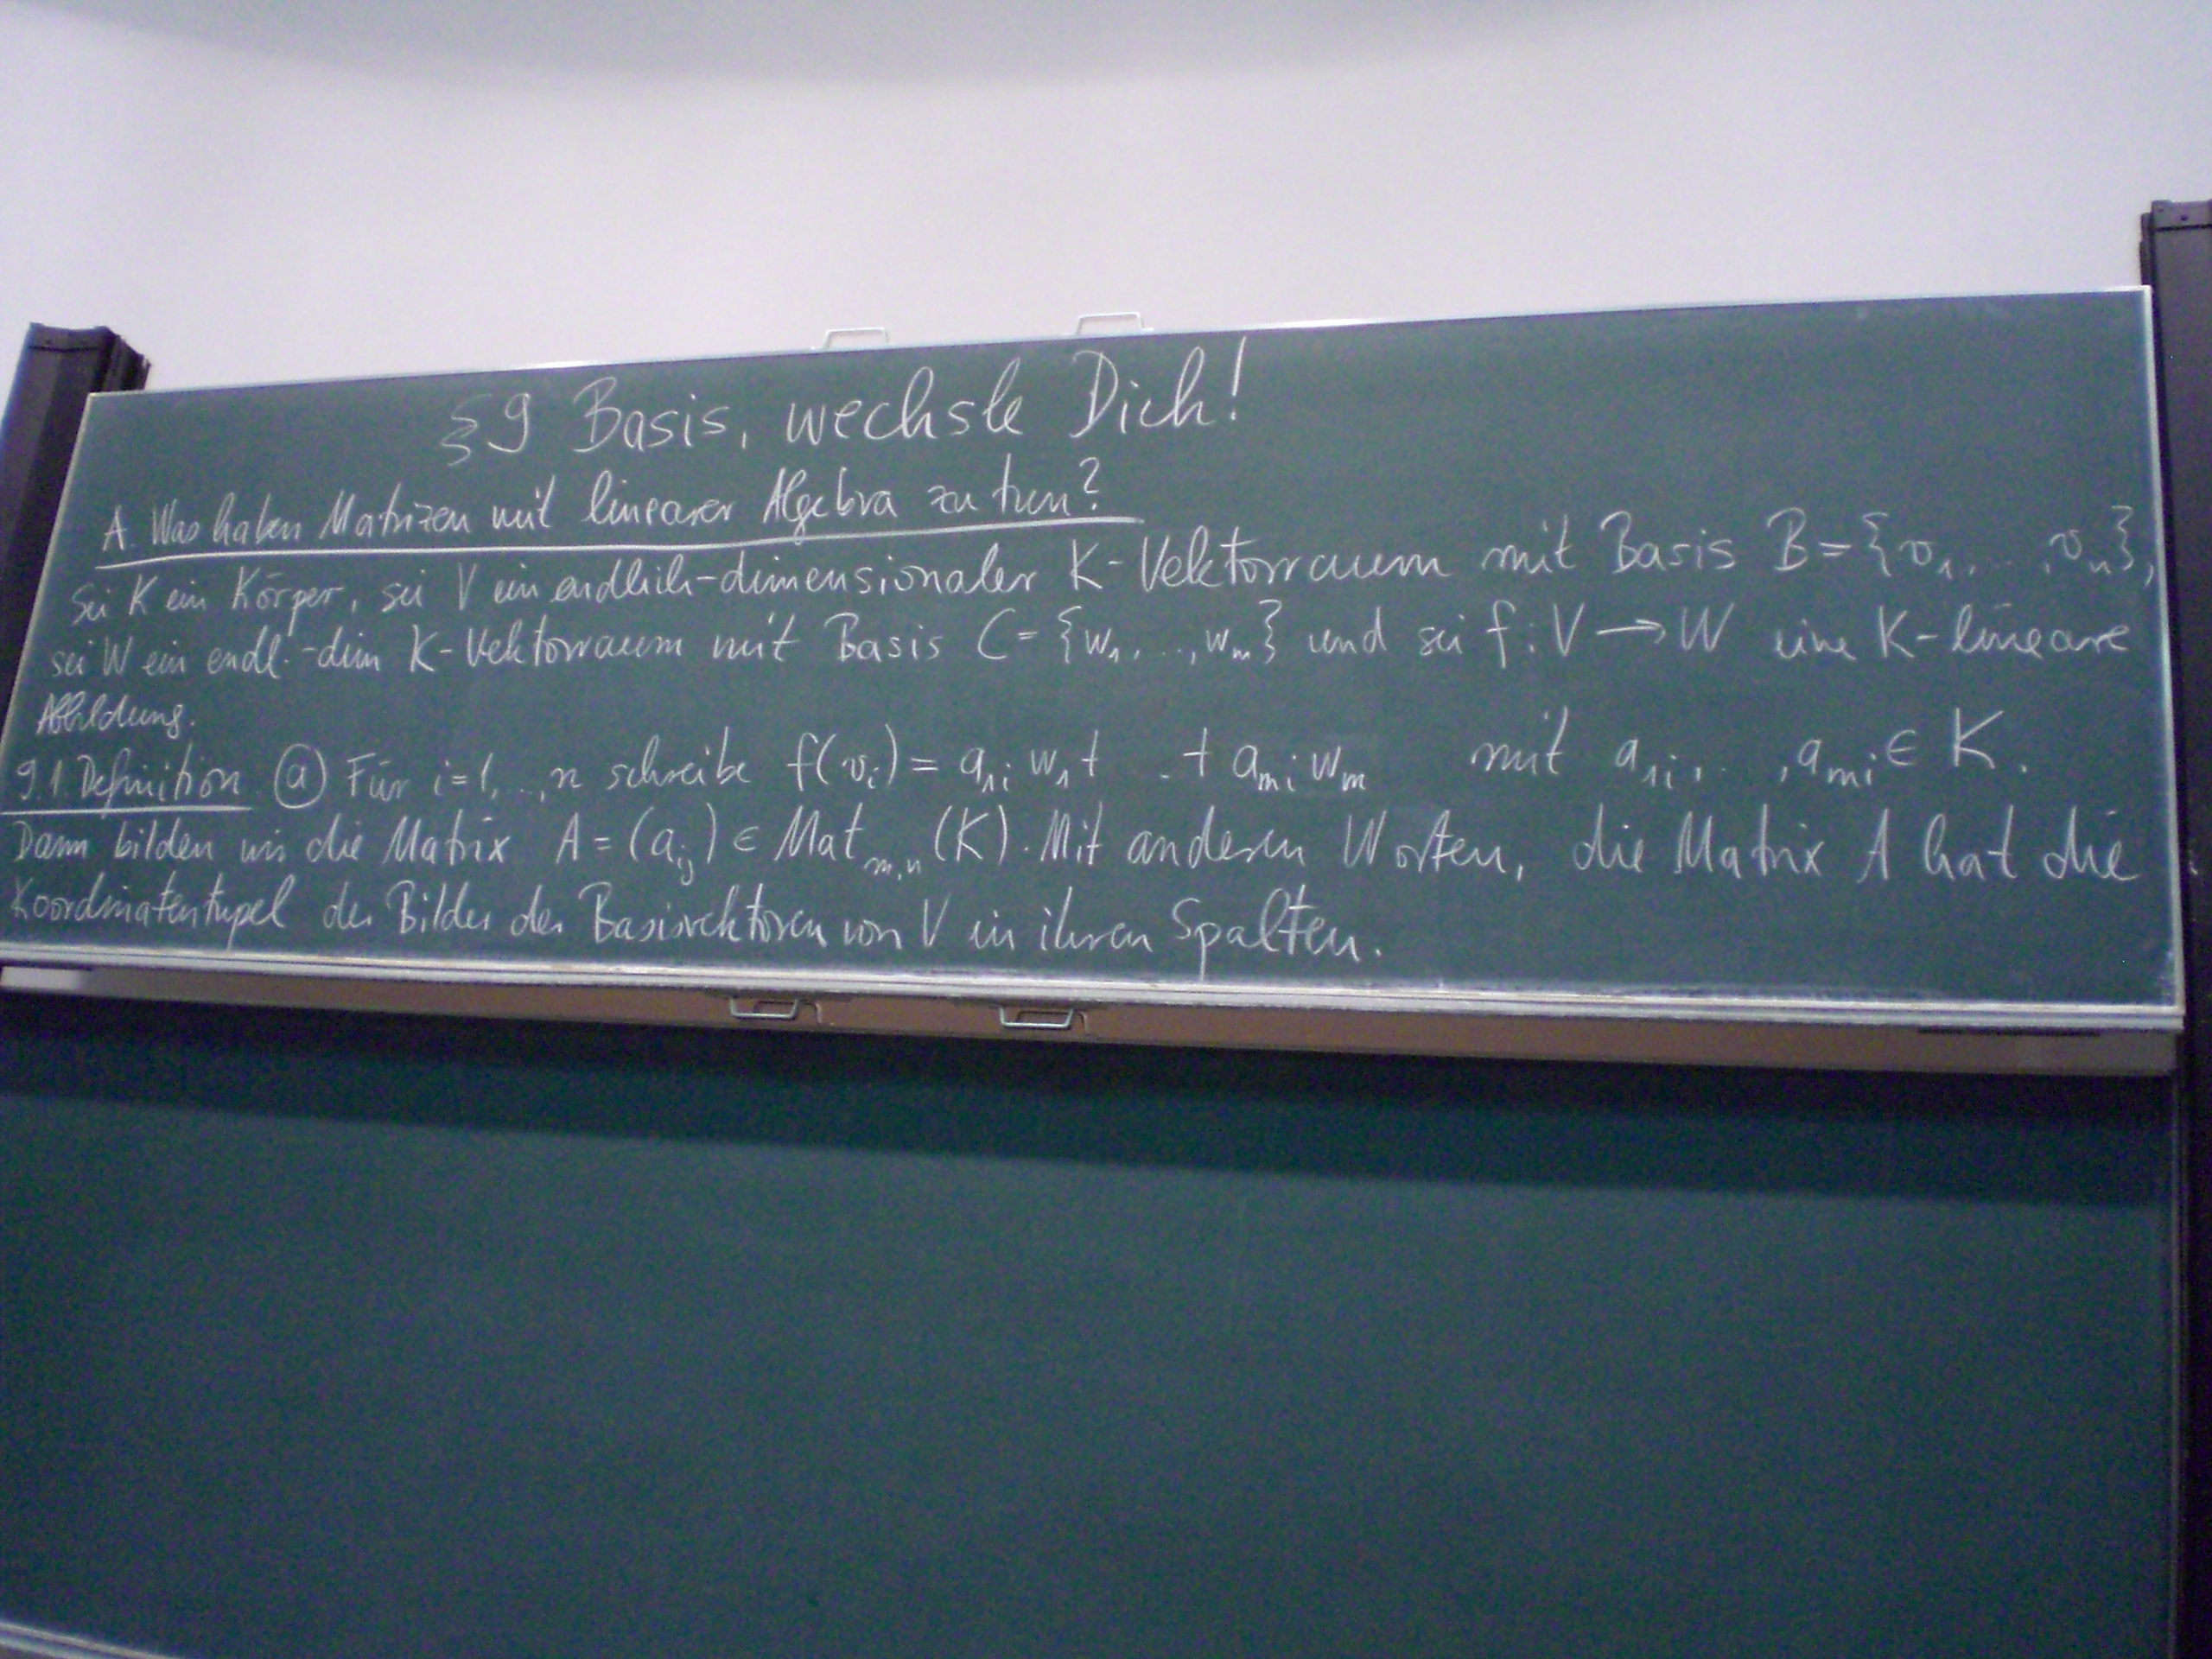 §9 Basis, wechsle Dich!
A. Was haben Matrizen mit linearer Algebra zu tun?
Sei K ein Körper, sei V ein endlich-dimensionaler K-Vektorraum mit Basis B={v₁,...,vₙ},
sei W ein endl.-dim K-Vektorraum mit Basis C={w₁,...,wₘ} und sei f:V→W eine K-lineare
Abbildung.
9.1 Definition ⓐ Für i=1,...,n schreibe f(vᵢ)=a₁ᵢw₁+...+aₘᵢwₘ mit a₁ᵢ,...,aₘᵢ∈K.
Dann bilden wir die Matrix A=(aᵢⱼ)∈Matₘ,ₙ(K). Mit anderen Worten, die Matrix A hat die
Koordinatentupel der Bilder der Basisvektoren von V in ihren Spalten.